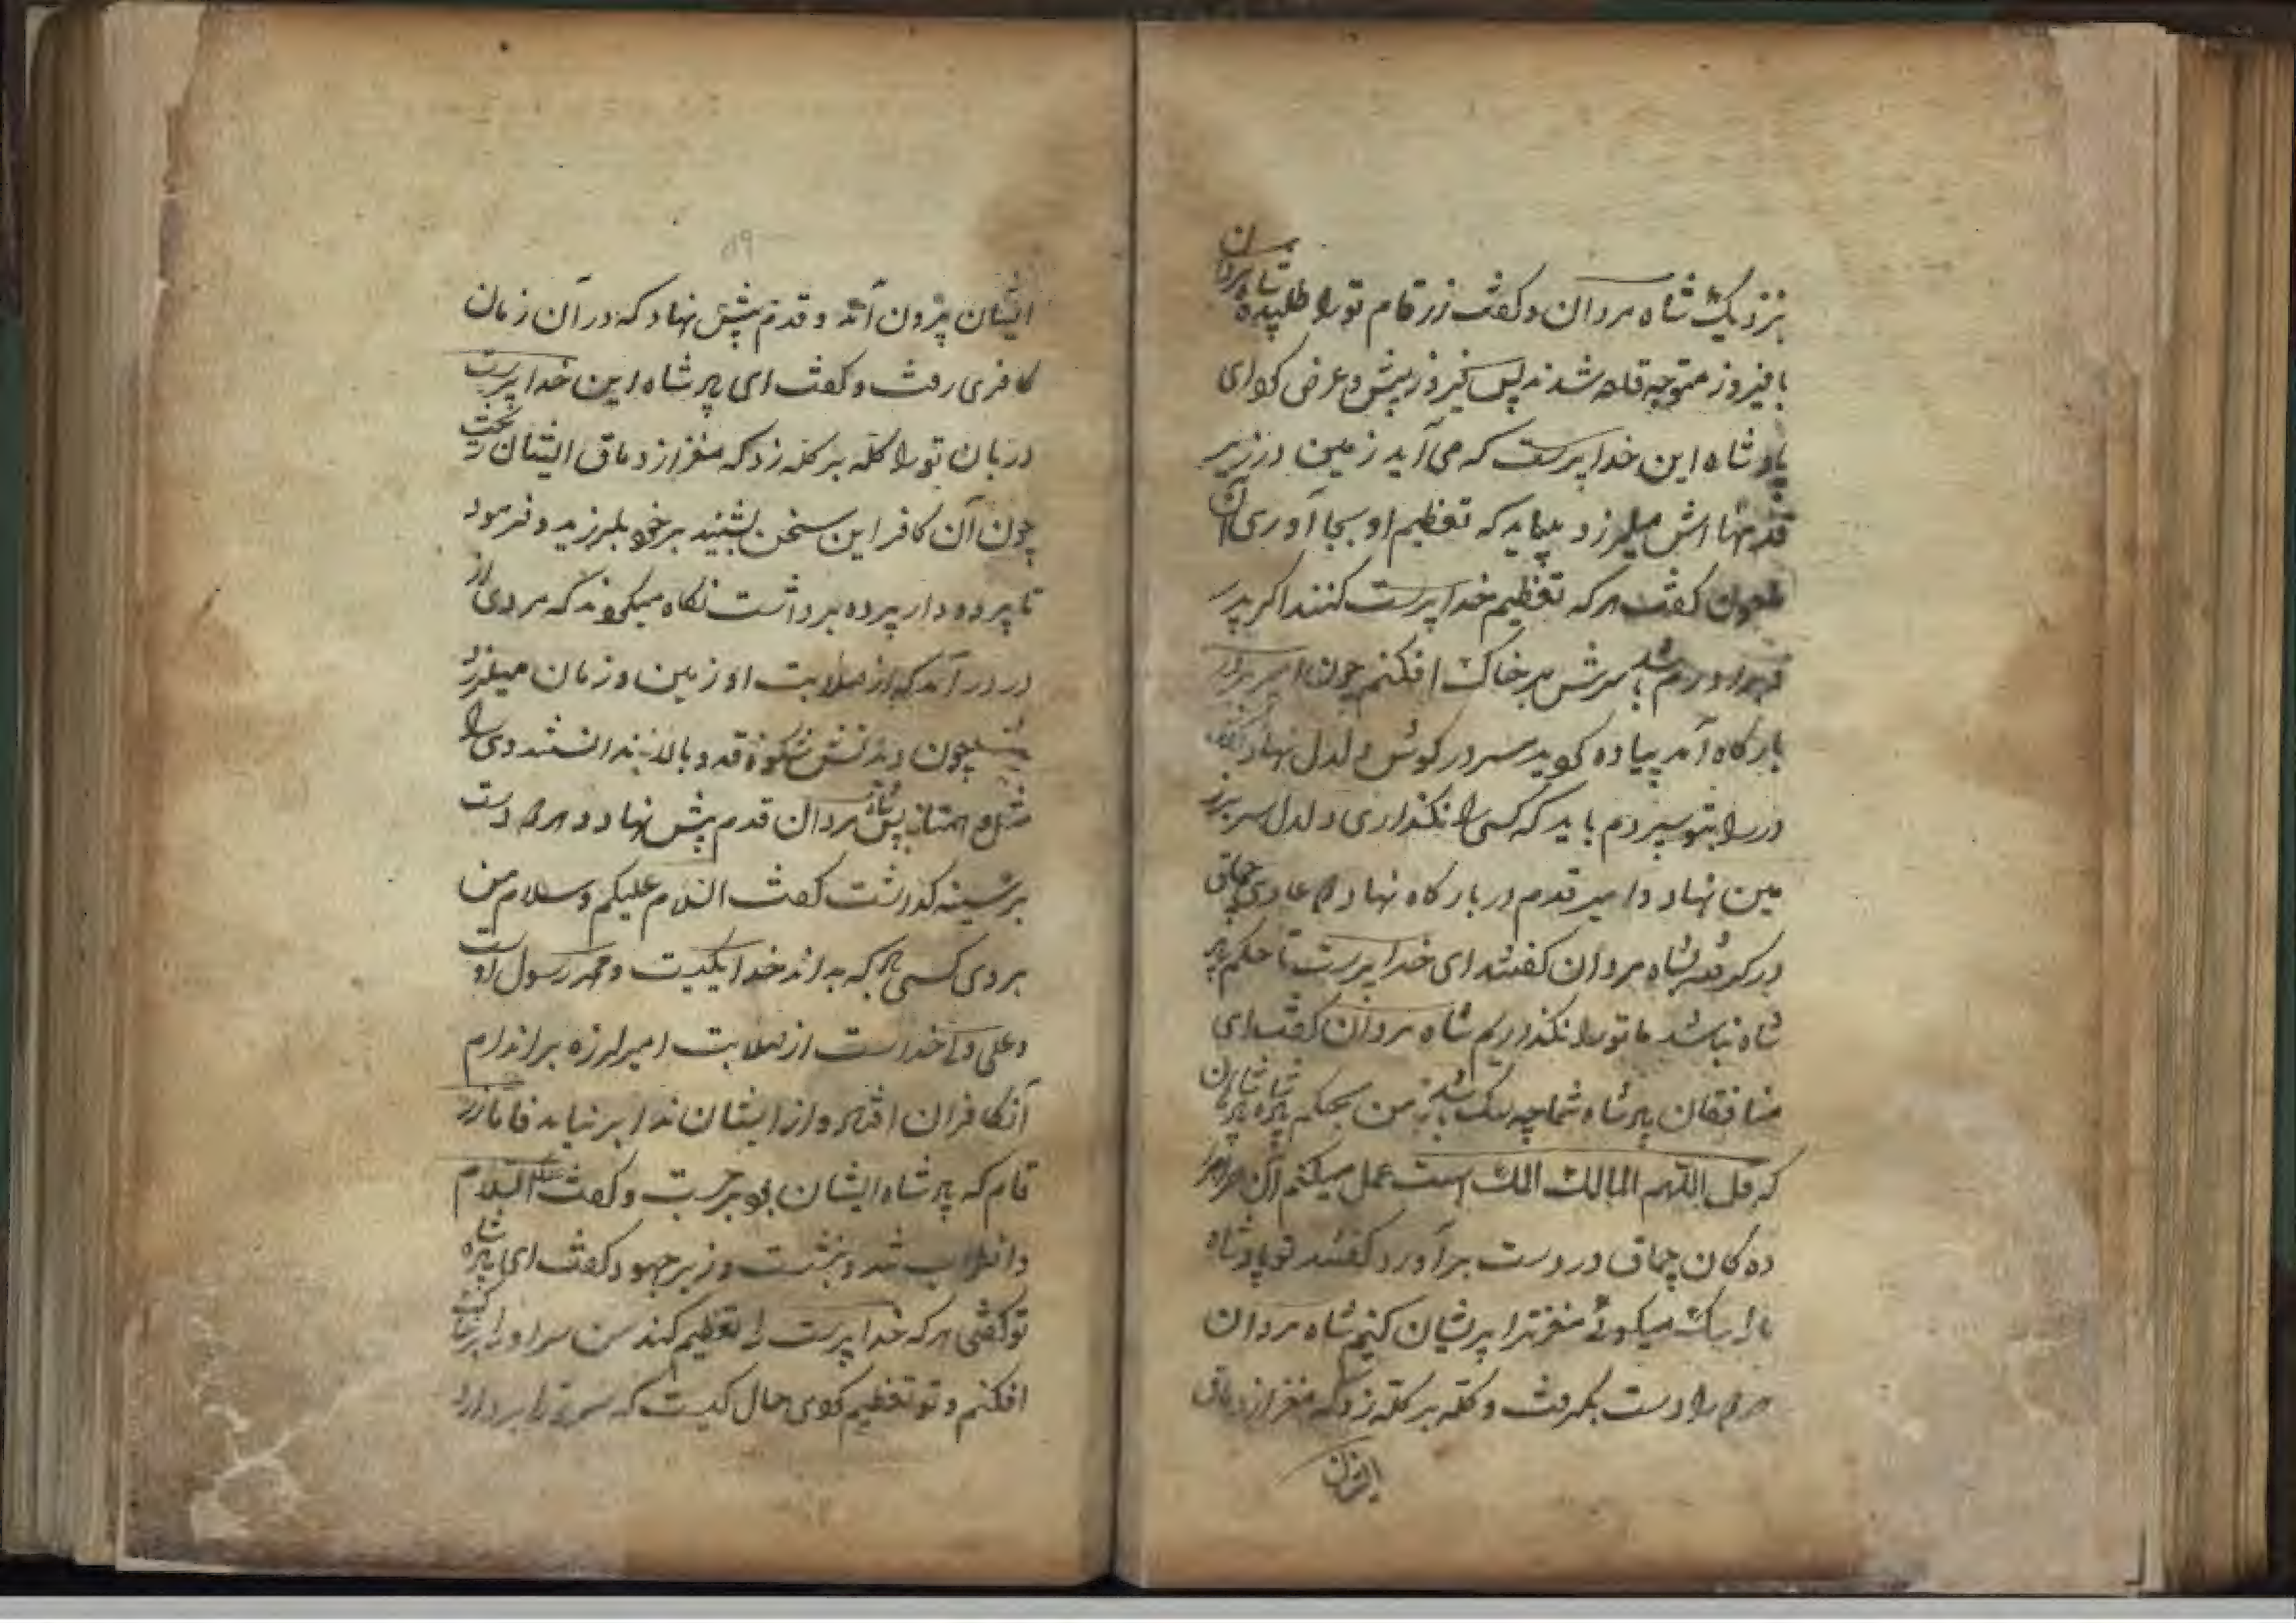 بنزدیک شاه مردان و کفت زرقام تو را طلبیده شاه مردان
با فیروز متوجه قلعه شدند پس فیروز پیش و عرض کرد ای
پادشاه این خدا پرست که می آید زمین در زیر
قدمها اش میلرزد بیاید که تعظیم او بجا آوری آن
ملعون کفت هر که تعظیم خدا پرست کنند اکر پدر
باشد سرش بر خاک افکنم چون امیر بر در
بارکاه آمد پیاده سر در کوش دلدل نهاد
در را بتو سپردم باید که کسی را نکذاری دلدل سر بر
مین نهاد و امیر قدم در بارکاه نهاد
شاه مردان کفتند ای خدا پرست تا حکم پاد
شاه نباشد ما تو را نکذاریم شاه مردان کفت ای
منافقان پادشاه شما چه سک باشد من بحکم پادشاه
که قل اللهم المالک الملک است عمل میکنم
ده کان چماق در دست بر آورد کفتند تو پادشاه
ما را سک میکوئی مغز ترا پریشان کنیم شاه مردان
هر دو را دست بکرفت و کله بر کله زد که مغز از دماق
ایشان
۱۹
ایشان بیرون آمد و قدم پیش نهاد که در آن زمان
کافری رفت و کفت ای پادشاه این خدا پرست
دربان تو را کله بر کله زد که مغز از دماق ایشان ریخت
چون آن کافر این سخن بشنید بر خود بلرزید و فرمود
تا پرده دار پرده برداشت نکاه میکردند که مردی از
در در آمد که از صلابت او زمین و زمان میلرزد
چون دیدنش شکوه قد و بالا ندانستند وی را
مثل و همتا پس شاه مردان قدم پیش نهاد و هر دو دست
بر سینه کذرشت کفت السلام علیکم و سلام من
بر وی کسی که بداند خدا یکیست و محمد رسول اوست
و علی ولی خداست از صلابت امیر لرزه بر اندام
آن کافران افتاد و از ایشان ندا بر نیاید فاما زر
قام که پادشاه ایشان بود برجست و کفت علیکم السلام
شد و بنشست وزیر جهود کفت ای پادشاه
تو کفتی هر که خدا پرست را تعظیم کند من سر او را
افکنم و تو تعظیم کردی حال کیست که سر ترا بردارد